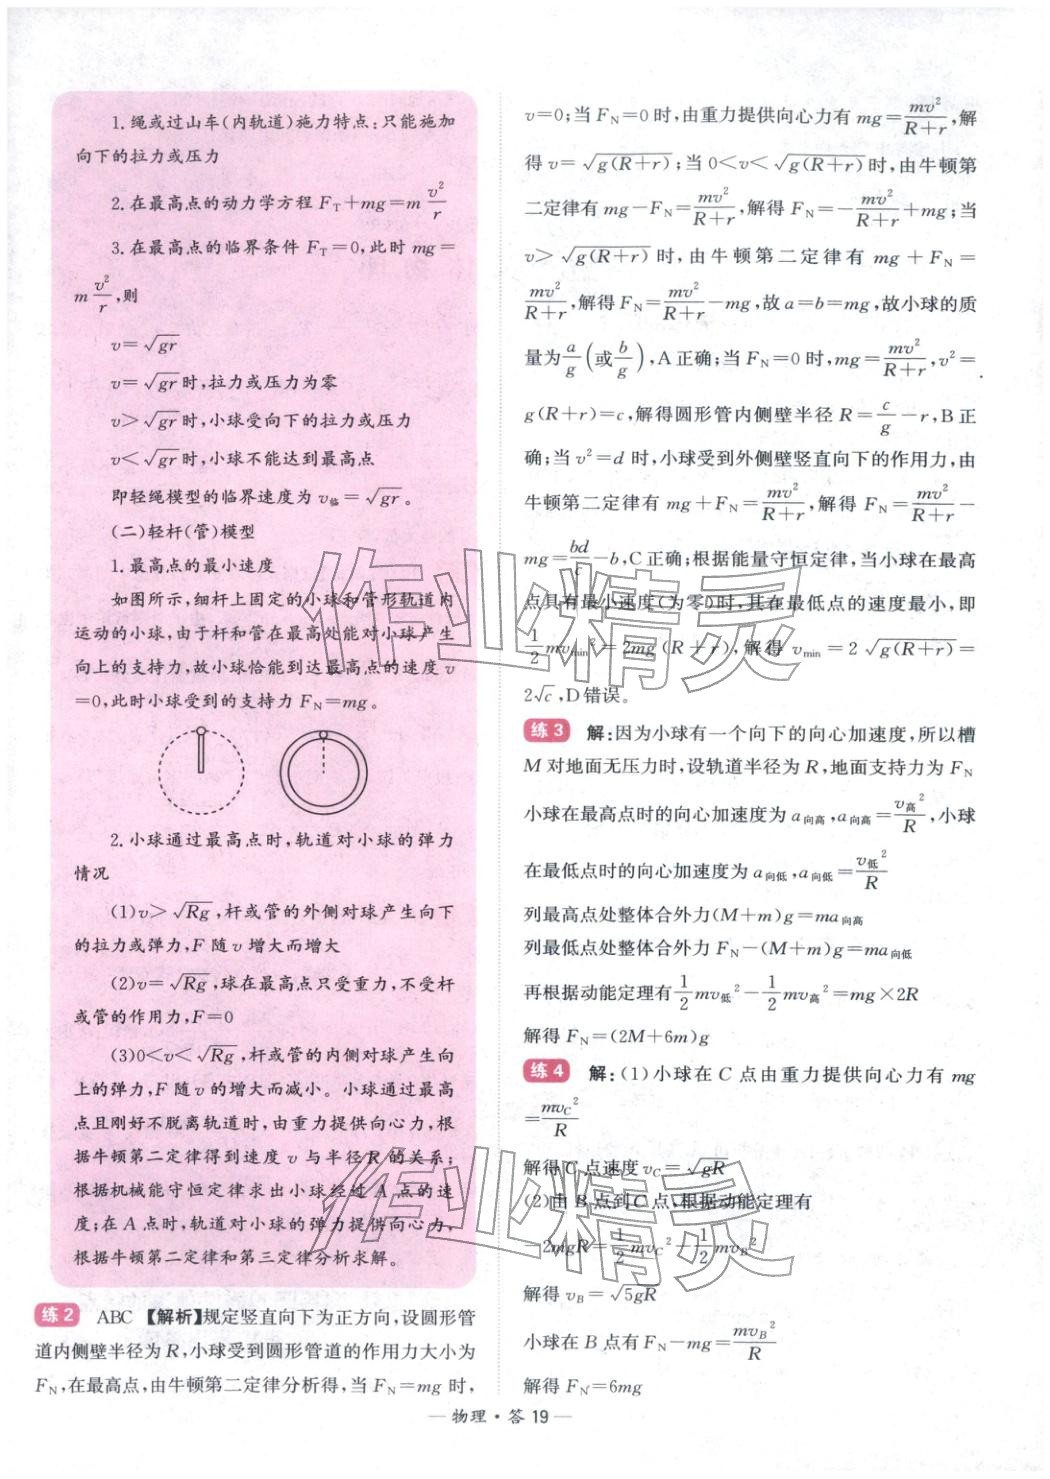 1.绳或过山车(内轨道)施力特点:只能施加
向下的拉力或压力
2.在最高点的动力学方程 F_T+mg=m v²/r
3.在最高点的临界条件 F_T=0,此时 mg=
m v²/r,则
v=√gr
v=√gr时,拉力或压力为零
v>√gr时,小球受向下的拉力或压力
v<√gr时,小球不能达到最高点
即轻绳模型的临界速度为 v临=√gr。
(二)轻杆(管)模型
1.最高点的最小速度
如图所示,细杆上固定的小球和管形轨道内
运动的小球,由于杆和管在最高处能对小球产生
向上的支持力,故小球恰能到达最高点的速度 v
=0,此时小球受到的支持力 F_N=mg。
2.小球通过最高点时,轨道对小球的弹力
情况
(1)v>√Rg,杆或管的外侧对球产生向下
的拉力或弹力,F 随 v 增大而增大
(2)v=√Rg,球在最高点只受重力,不受杆
或管的作用力,F=0
(3)0<v<√Rg,杆或管的内侧对球产生向
上的弹力,F 随 v 的增大而减小。小球通过最高
点且刚好不脱离轨道时,由重力提供向心力,根
据牛顿第二定律得到速度 v 与半径 R 的关系;
根据机械能守恒定律求出小球经过 A 点的速
度;在 A 点时,轨道对小球的弹力提供向心力,
根据牛顿第二定律和第三定律分析求解。
练2 ABC 【解析】规定竖直向下为正方向,设圆形管
道内侧壁半径为 R,小球受到圆形管道的作用力大小为
F_N,在最高点,由牛顿第二定律分析得,当 F_N=mg 时,
v=0;当 F_N=0 时,由重力提供向心力有 mg=mv²/(R+r),解
得 v=√g(R+r);当 0<v<√g(R+r)时,由牛顿第
二定律有 mg-F_N=mv²/(R+r),解得 F_N=-mv²/(R+r)+mg;当
v>√g(R+r)时,由牛顿第二定律有 mg+F_N=
mv²/(R+r),解得 F_N=mv²/(R+r)-mg,故 a=b=mg,故小球的质
量为a/g(或b/g),A 正确;当 F_N=0 时,mg=mv²/(R+r),v²=
g(R+r)=c,解得圆形管内侧壁半径 R=c/g-r,B 正
确;当 v²=d 时,小球受到外侧壁竖直向下的作用力,由
牛顿第二定律有 mg+F_N=mv²/(R+r),解得 F_N=mv²/(R+r)-
mg=bd/c-b,C 正确;根据能量守恒定律,当小球在最高
点具有最小速度(为零)时,其在最低点的速度最小,即
1/2mv_min²=2mg(R+r),解得 v_min=2√g(R+r)=
2√c,D 错误。
练3 解:因为小球有一个向下的向心加速度,所以槽
M 对地面无压力时,设轨道半径为 R,地面支持力为 F_N
小球在最高点时的向心加速度为 a向高,a向高=v高²/R,小球
在最低点时的向心加速度为 a向低,a向低=v低²/R
列最高点处整体合外力(M+m)g=ma向高
列最低点处整体合外力 F_N-(M+m)g=ma向低
再根据动能定理有1/2mv低²-1/2mv高²=mg×2R
解得 F_N=(2M+6m)g
练4 解:(1)小球在 C 点由重力提供向心力有 mg
=mv_C²/R
解得 C 点速度 v_C=√gR
(2)由 B 点到 C 点,根据动能定理有
-2mgR=1/2mv_C²-1/2mv_B²
解得 v_B=√5gR
小球在 B 点有 F_N-mg=mv_B²/R
解得 F_N=6mg
— 物理·答 19 —
作业精灵
作业精灵